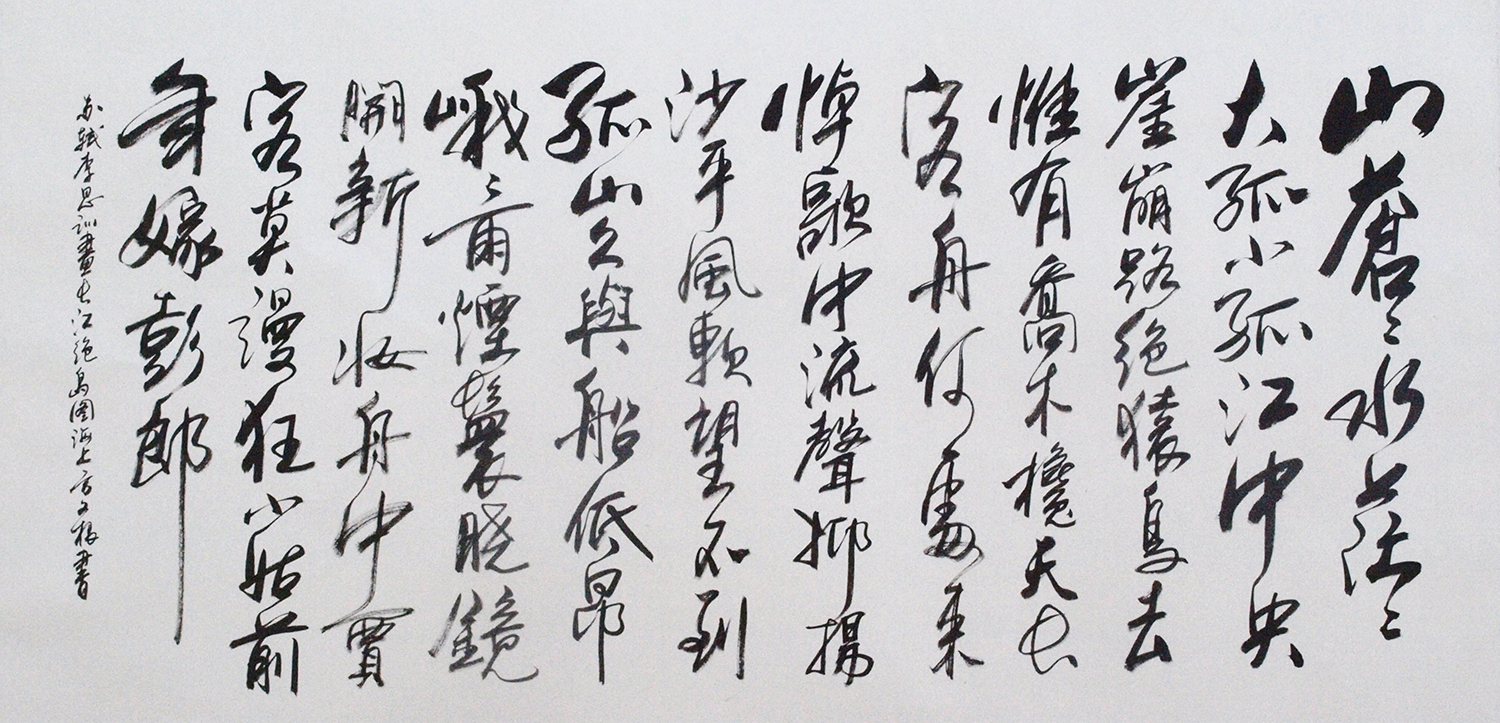 山蒼〻水茫〻
大孤小孤江中央
崖崩路絶猿鳥去
惟有喬木欃天長
客舟何處來
悼歌中流聲抑揚
沙平風軟望不到
孤山久與船低昂
峨〻兩煙鬟曉鏡
開新妝舟中賈
客莫漫狂小姑前
年嫁彭郎
蘇軾李思訓畫長江絶島图海上書